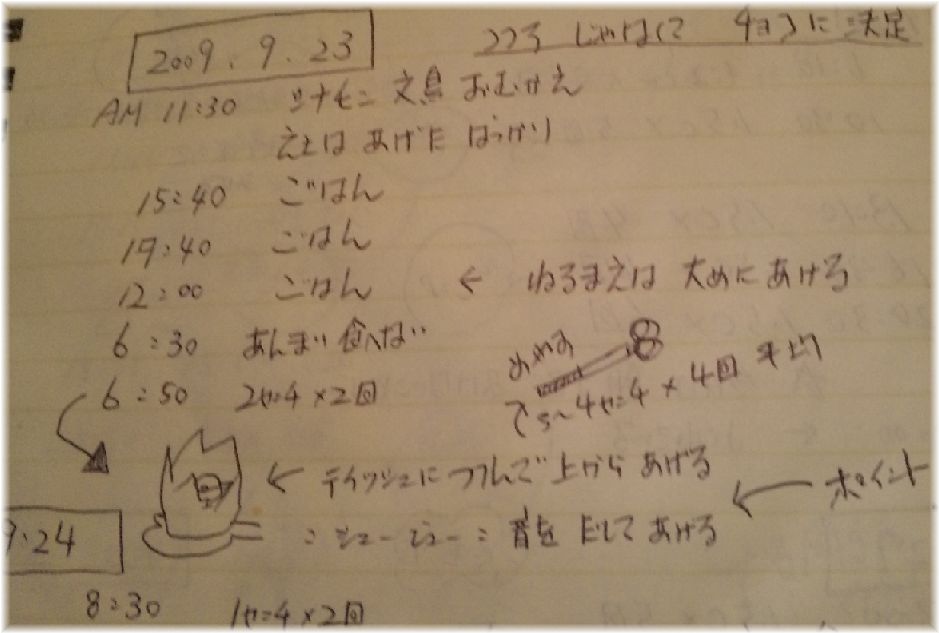 2009.9.23
ココろ じゃなくて 4ヨコに 満足
AM 11:30 シナモン 文鳥 おむかえ
えさは あげた ばっかり
15:40 ごはん
19:40 ごはん
12:00 ごはん ← ねるまえは 大めにあげろ
6:30 あんまり 食べない
6:50 2メモリ×2回
5〜4メモリ×4回
← ティッシュにつつんで 上から あげる
ポイント
:シューシュー: 音を だして あげる
9.24
8:30 1メモリ×2回